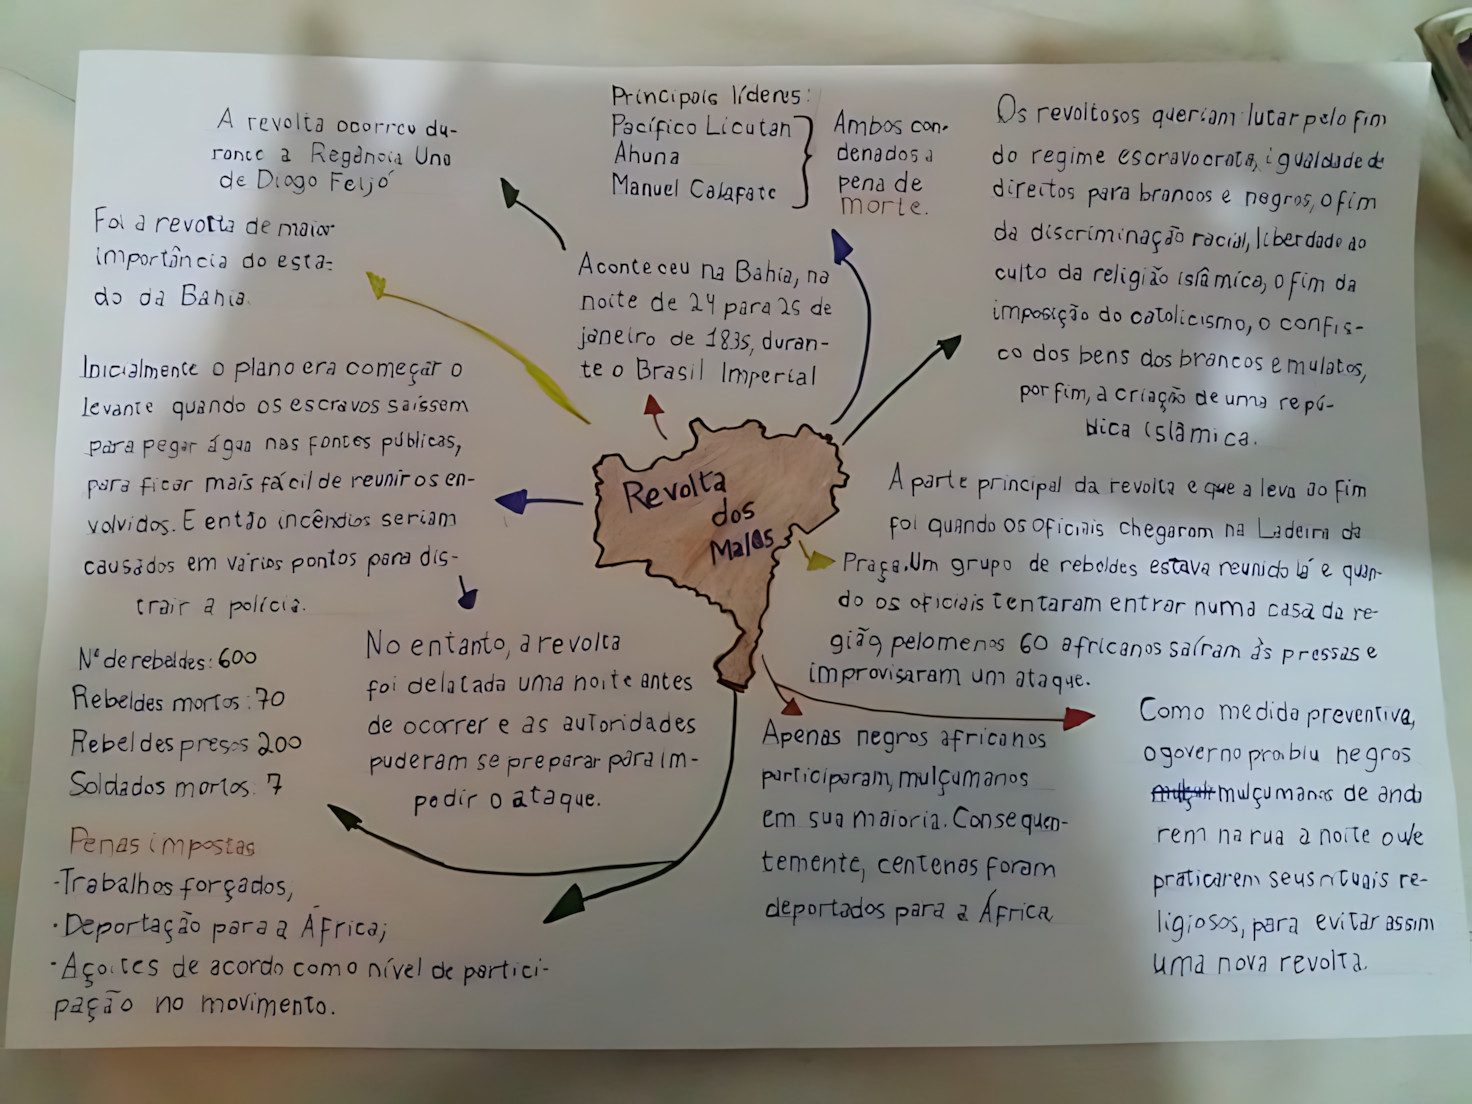 A revolta ocorreu du-
rante a Regência Una
de Diogo Feijó
Principais líderes:
Pacífico Licutan
Ahuna
Manuel Calafate
Ambos con-
denados a
pena de
morte.
Os revoltosos queriam lutar pelo fim
do regime escravocrata, igualdade de
direitos para brancos e negros, o fim
da discriminação racial, liberdade ao
culto da religião islâmica, o fim da
imposição do catolicismo, o confis-
co dos bens dos brancos e mulatos,
por fim, a criação de uma repú-
blica islâmica.
Foi a revolta de maior
importância do esta-
do da Bahia.
Aconteceu na Bahia, na
noite de 24 para 25 de
janeiro de 1835, duran-
te o Brasil Imperial
Inicialmente o plano era começar o
levante quando os escravos saíssem
para pegar água nas fontes públicas,
para ficar mais fácil de reunir os en-
volvidos. E então incêndios seriam
causados em vários pontos para dis-
trair a polícia.
Revolta
dos
Malês
A parte principal da revolta e que a leva ao fim
foi quando os oficiais chegaram na Ladeira da
Praça. Um grupo de rebeldes estava reunido lá e quan-
do os oficiais tentaram entrar numa casa da re-
gião, pelo menos 60 africanos saíram às pressas e
improvisaram um ataque.
No entanto, a revolta
foi delatada uma noite antes
de ocorrer e as autoridades
puderam se preparar para im-
pedir o ataque.
Nº de rebeldes: 600
Rebeldes mortos: 70
Rebeldes presos 200
Soldados mortos: 7
Penas impostas
-Trabalhos forçados,
·Deportação para a África;
·Açoites de acordo com o nível de partici-
pação no movimento.
Apenas negros africanos
participaram, mulçumanos
em sua maioria. Consequen-
temente, centenas foram
deportados para a África
Como medida preventiva,
o governo proibiu negros
mulçumanos de anda
rem na rua a noite ou de
praticarem seus rituais re-
ligiosos, para evitar assim
uma nova revolta.